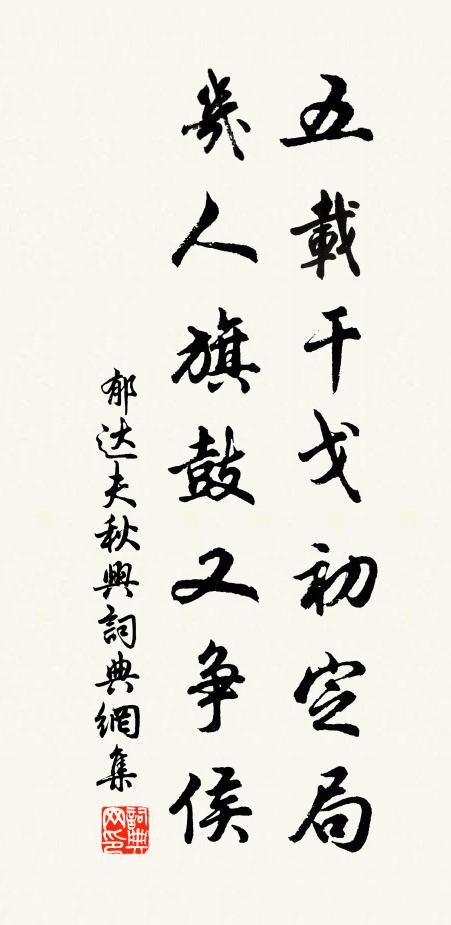 五載干戈初定局
幾人旗鼓又争侯
郁达夫秋興詞典網集
詞典网印